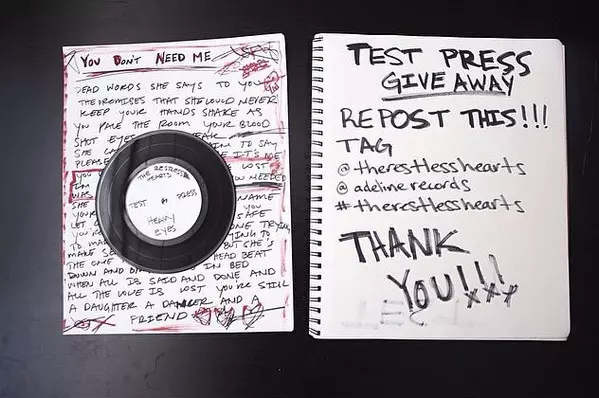 YOU DON'T NEED ME
DEAD WORDS SHE SAYS TO YOU
THE PROMISES THAT SHE COULD NEVER
KEEP YOUR HANDS SHAKE AS
YOU PACE THE ROOM YOUR BLOOD
SHOT EYES
SHE TO SAY
PLEASE
LOST
YOU NEEDED
WAS
SHE NAME
YOUR YOU
LET SAFE
ONE TRYING
TO MA TO
MAKE SE BUT SHE'S
THE ONE HEAD BEAT
DOWN AND IN BED
WHEN ALL IS SAID AND DONE AND
ALL THE LOVE IS LOST YOU'RE STILL
A DAUGHTER A DANCER AND A
FRIEND
THE RESTLESS
HEARTS
TEST PRESS
HEAVY
EYES
TEST PRESS
GIVE AWAY
REPOST THIS!!!
TAG
@therestlesshearts
@adelinerecords
#therestlesshearts
THANK
YOU!!!
xxx